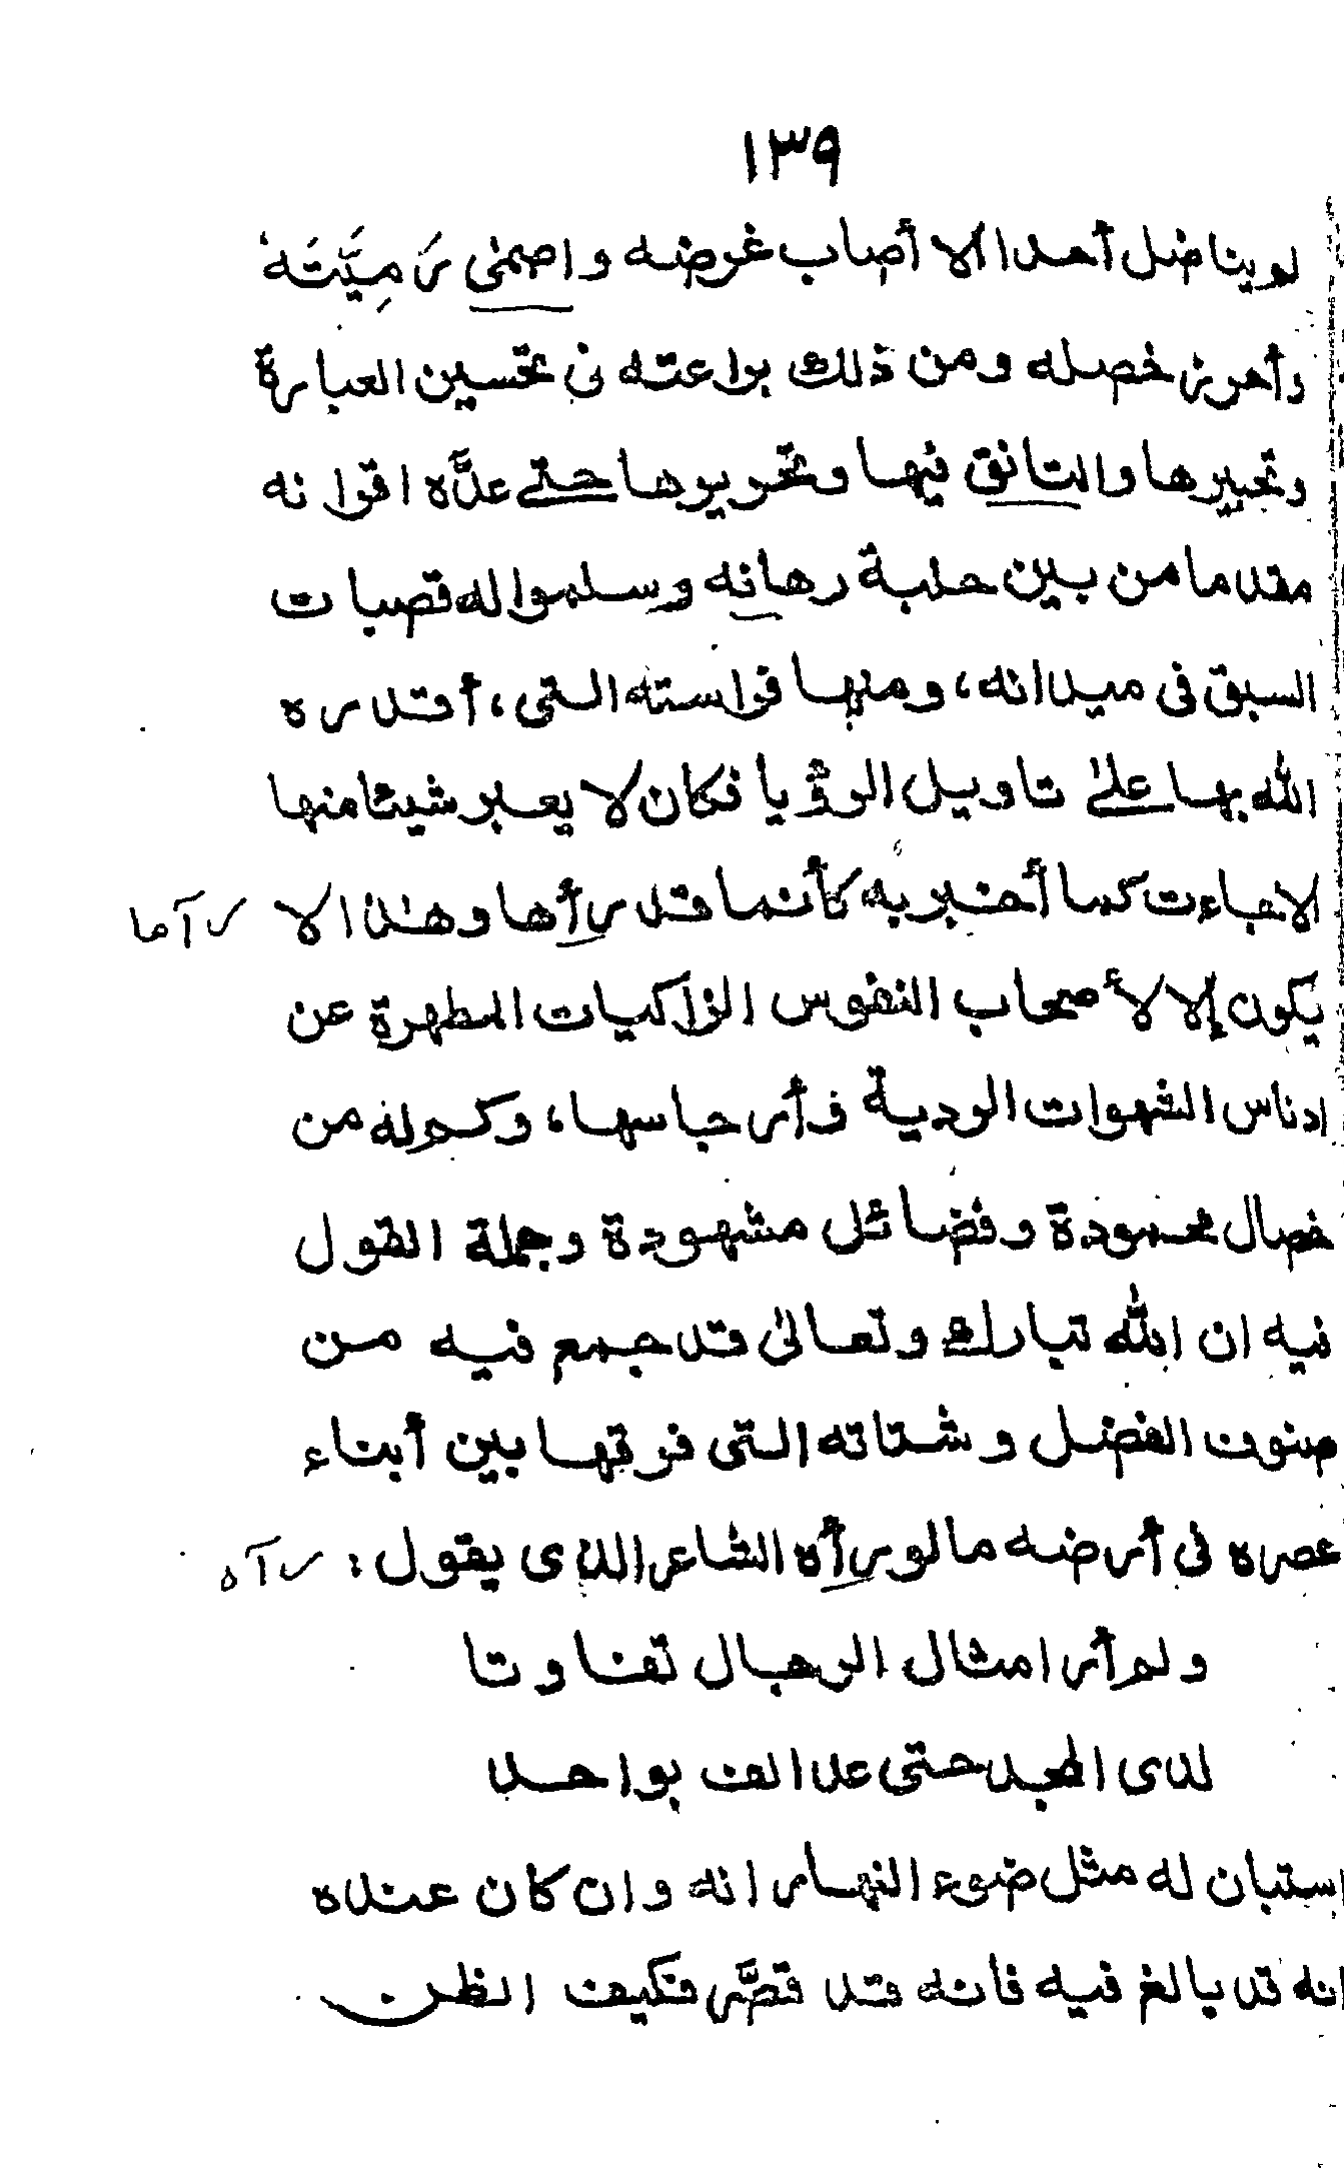 ١٣٩
لم يناضل أحدا الا أصاب غرضه واصمٰى رَمِيَّتَهُ
وأحرز خصله ومن ذلك براعته فى تحسين العبارة
وتحبيرها والتانق فيها وتحريرها حتے عدَّه اقرانه
مقدما من بين حلبة رهانه وسلموا له قصبات
السبق فى ميدانه، ومنها فراسته التى، أقدره
الله بها علىٰ تاويل الرؤيا فكان لا يعبر شيئا منها
الاجاءت كما أخبر به كأنما قد رأها وهذا لا رآها
يكون إلا لأصحاب النفوس الزاكيات المطهرة عن
ادناس الشهوات الردية وأرجاسها، وكم له من
خصال محمودة وفضائل مشهودة وجملة القول
فيه ان الله تبارك وتعالىٰ قد جمع فيه من
صنوف الفضل وشتاته التى فرقها بين أبناء
عصره فى أرضه مالو رأه الشاعر الذى يقول: رآه
ولم أر امثال الرجال تفاوتا
لدى المجد حتى عد الف بواحد
استبان له مثل ضوء النهار انه وان كان عنده
انه قد بالغ فيه فانه قد قصَّر فكيف الظن